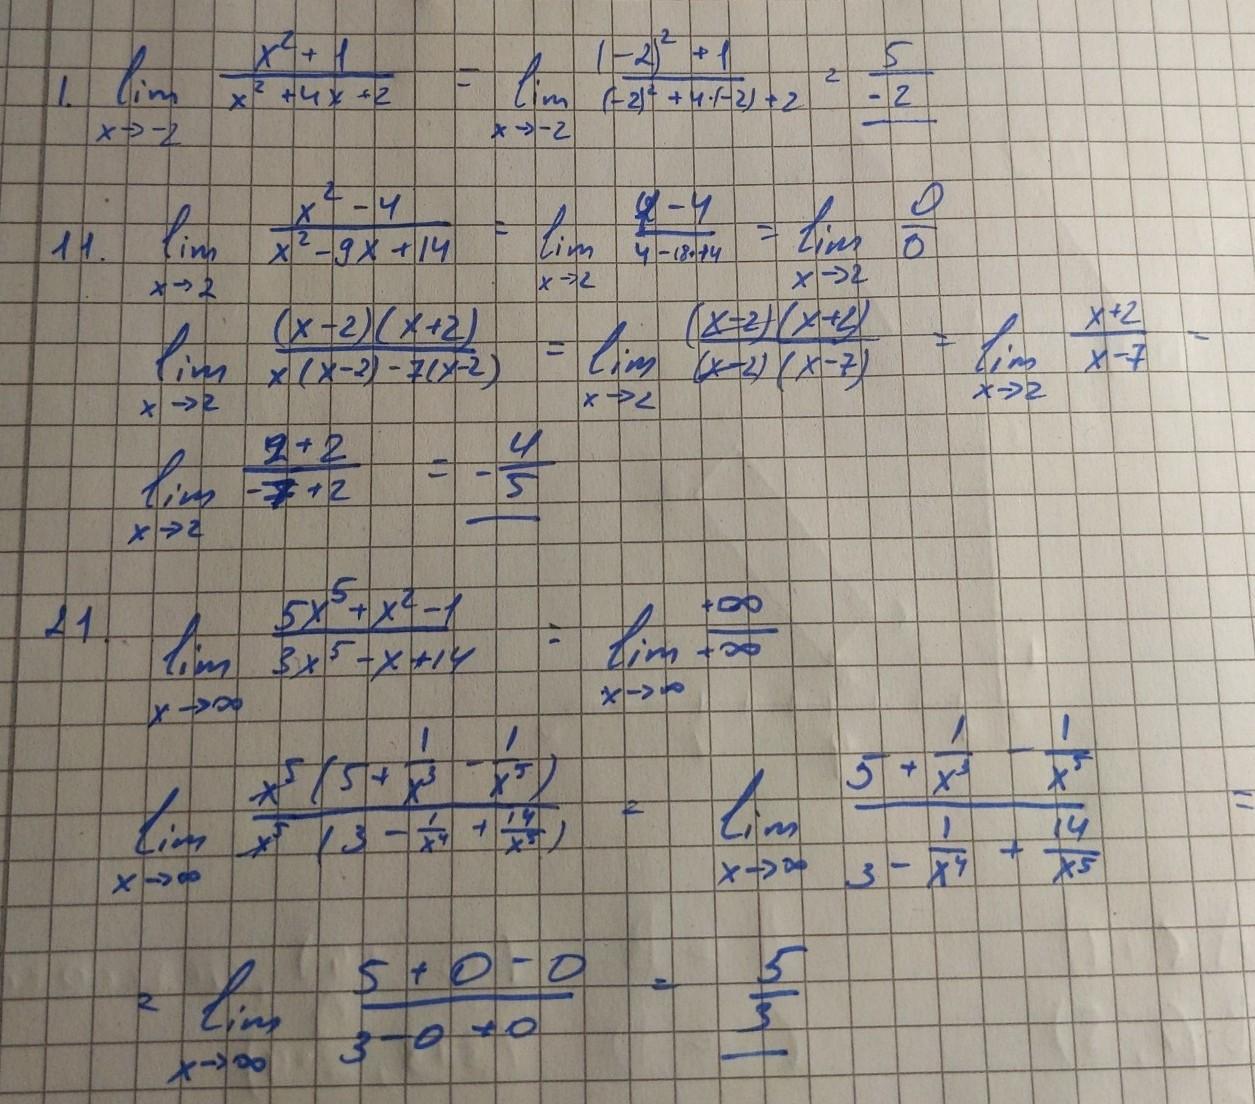 1. lim x→-2 (x² + 1)/(x² + 4x + 2) = lim x→-2 ((-2)² + 1)/((-2)² + 4·(-2) + 2) = 5/-2
11. lim x→2 (x² - 4)/(x² - 9x + 14) = lim x→2 (4 - 4)/(4 - 18 + 14) = lim x→2 0/0
lim x→2 ((x-2)(x+2))/(x(x-2) - 7(x-2)) = lim x→2 ((x-2)(x+2))/((x-2)(x-7)) = lim x→2 (x+2)/(x-7) =
lim x→2 (2+2)/(-7+2) = -4/5
21. lim x→∞ (5x⁵ + x² - 1)/(3x⁵ - x + 14) = lim x→∞ +∞/+∞
lim x→∞ (x⁵(5 + 1/x³ - 1/x⁵))/(x⁵(3 - 1/x⁴ + 14/x⁵)) = lim x→∞ (5 + 1/x³ - 1/x⁵)/(3 - 1/x⁴ + 14/x⁵) =
= lim x→∞ (5 + 0 - 0)/(3 - 0 + 0) = 5/3